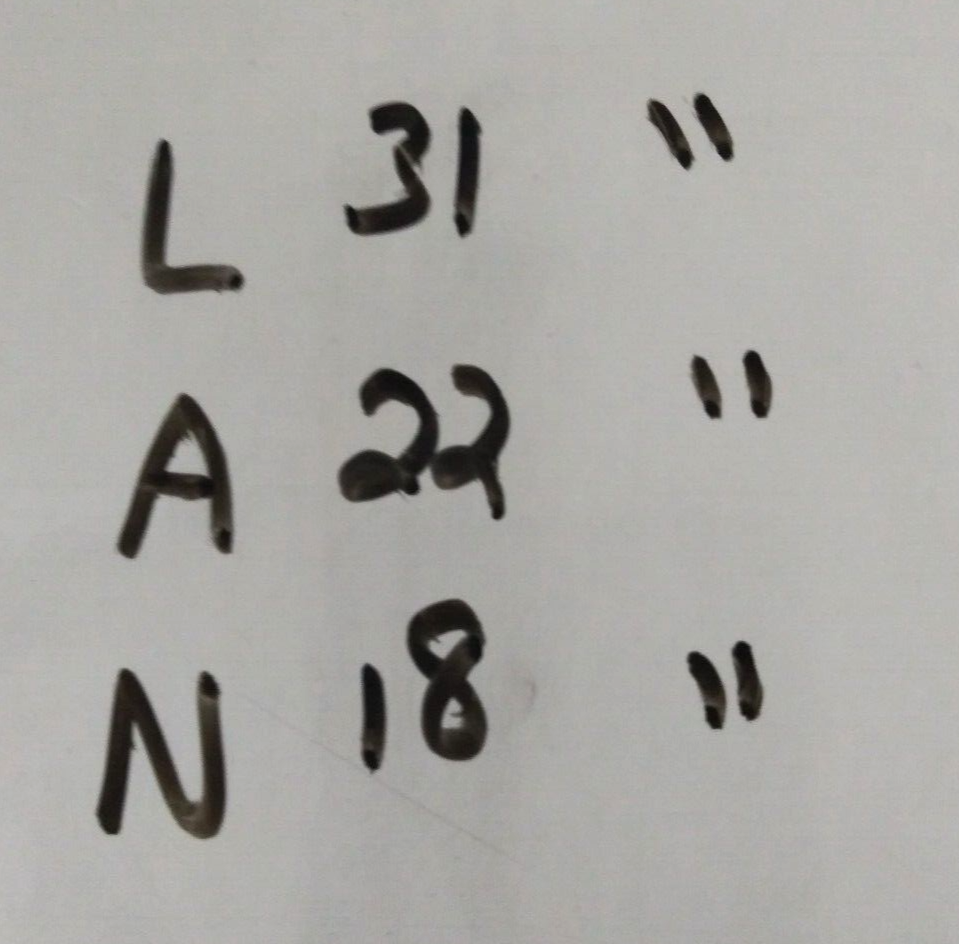 L 31 "
A 22 "
N 18 "